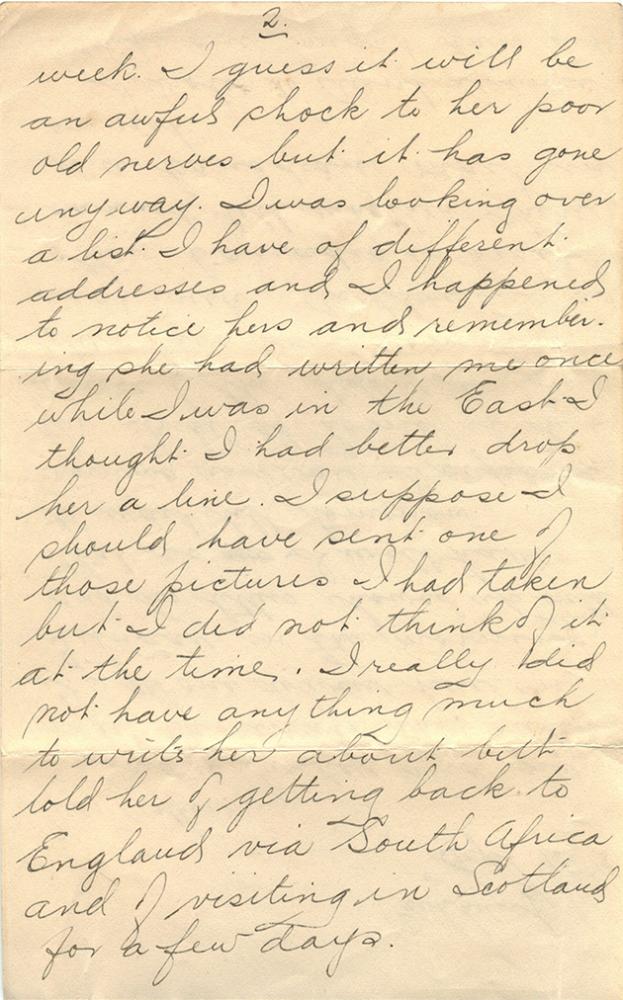 2.
week. I guess it will be
an awful shock to her poor
old nerves but it has gone
anyway. I was looking over
a list I have of different
addresses and I happened
to notice hers and remember-
ing she had written me once
while I was in the East I
thought I had better drop
her a line. I suppose I
should have sent one of
those pictures I had taken
but I did not think of it
at the time. I really did
not have anything much
to write her about but
told her of getting back to
England via South Africa
and of visiting in Scotland
for a few days.